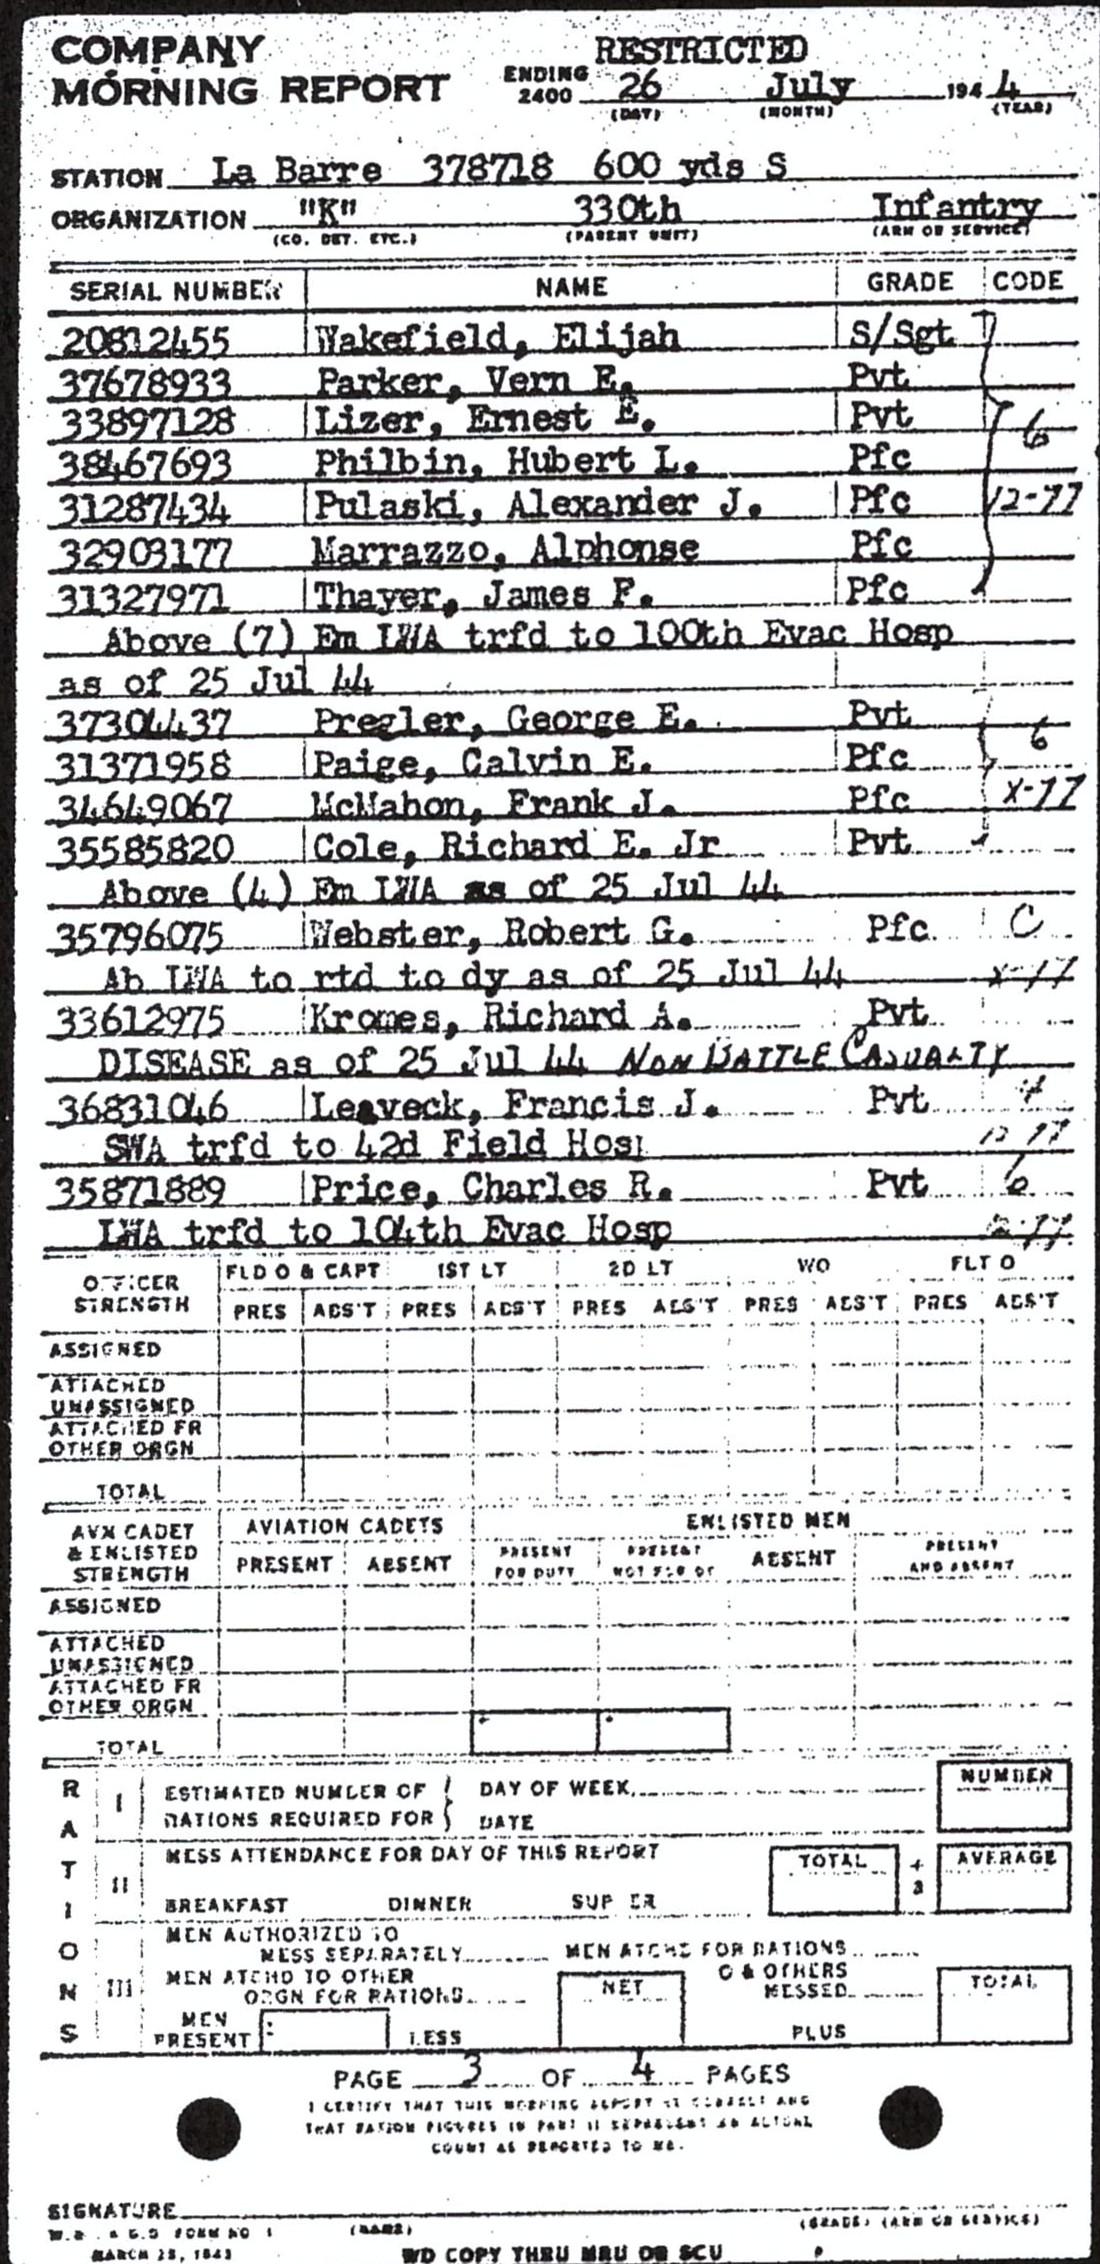 COMPANY
MORNING REPORT
RESTRICTED
ENDING 2400 26 July 1944
(DAY) (MONTH) (YEAR)
STATION La Barre 378718 600 yds S
ORGANIZATION "K" 330th Infantry
(CO. DET. ETC.) (PARENT UNIT) (ARM OR SERVICE)
SERIAL NUMBER NAME GRADE CODE
20812455 Wakefield, Elijah S/Sgt
37678933 Parker, Vern E. Pvt
33897128 Lizer, Ernest E. Pvt 6
38467693 Philbin, Hubert L. Pfc
31287434 Pulaski, Alexander J. Pfc 12-77
32903177 Marrazzo, Alphonse Pfc
31327971 Thayer, James F. Pfc
Above (7) Em LWA trfd to 100th Evac Hosp
as of 25 Jul 44
37304437 Pregler, George E. Pvt 6
31371958 Paige, Calvin E. Pfc
34649067 McMahon, Frank J. Pfc X-77
35585820 Cole, Richard E. Jr Pvt
Above (4) Em LWA as of 25 Jul 44
35796075 Webster, Robert G. Pfc C
Ab LWA to rtd to dy as of 25 Jul 44
33612975 Kromes, Richard A. Pvt
DISEASE as of 25 Jul 44 NON BATTLE CASUALTY
36831046 Leaveck, Francis J. Pvt 4
SWA trfd to 42d Field Hosp
35871889 Price, Charles R. Pvt 6
LWA trfd to 104th Evac Hosp 12-77
OFFICER STRENGTH FLD O & CAPT 1ST LT 2D LT WO FLT O
PRES ABS'T PRES ABS'T PRES ABS'T PRES ABS'T PRES ABS'T
ASSIGNED
ATTACHED
UNASSIGNED
ATTACHED FR
OTHER ORGN
TOTAL
AVN CADET & ENLISTED STRENGTH AVIATION CADETS ENLISTED MEN
PRESENT ABSENT PRESENT FOR DUTY PRESENT NOT FOR DY ABSENT PRESENT AND ABSENT
ASSIGNED
ATTACHED
UNASSIGNED
ATTACHED FR
OTHER ORGN
TOTAL
RATIONS
I ESTIMATED NUMBER OF DAY OF WEEK NUMBER
RATIONS REQUIRED FOR DATE
II MESS ATTENDANCE FOR DAY OF THIS REPORT TOTAL ÷ 3 AVERAGE
BREAKFAST DINNER SUPPER
III MEN AUTHORIZED TO
MESS SEPARATELY MEN ATCHD FOR RATIONS
MEN ATCHD TO OTHER
ORGN FOR RATIONS NET O & OTHERS MESSED TOTAL
MEN PRESENT LESS PLUS
PAGE 3 OF 4 PAGES
I CERTIFY THAT THIS MORNING REPORT IS CORRECT AND
THAT RATION FIGURES IN PART II REPRESENT AN ACTUAL
COUNT AS REPORTED TO ME.
SIGNATURE
(NAME) (GRADE) (ARM OR SERVICE)
W.D. A.G.O FORM NO 1
MARCH 25, 1943
WD COPY THRU MRU OR SCU